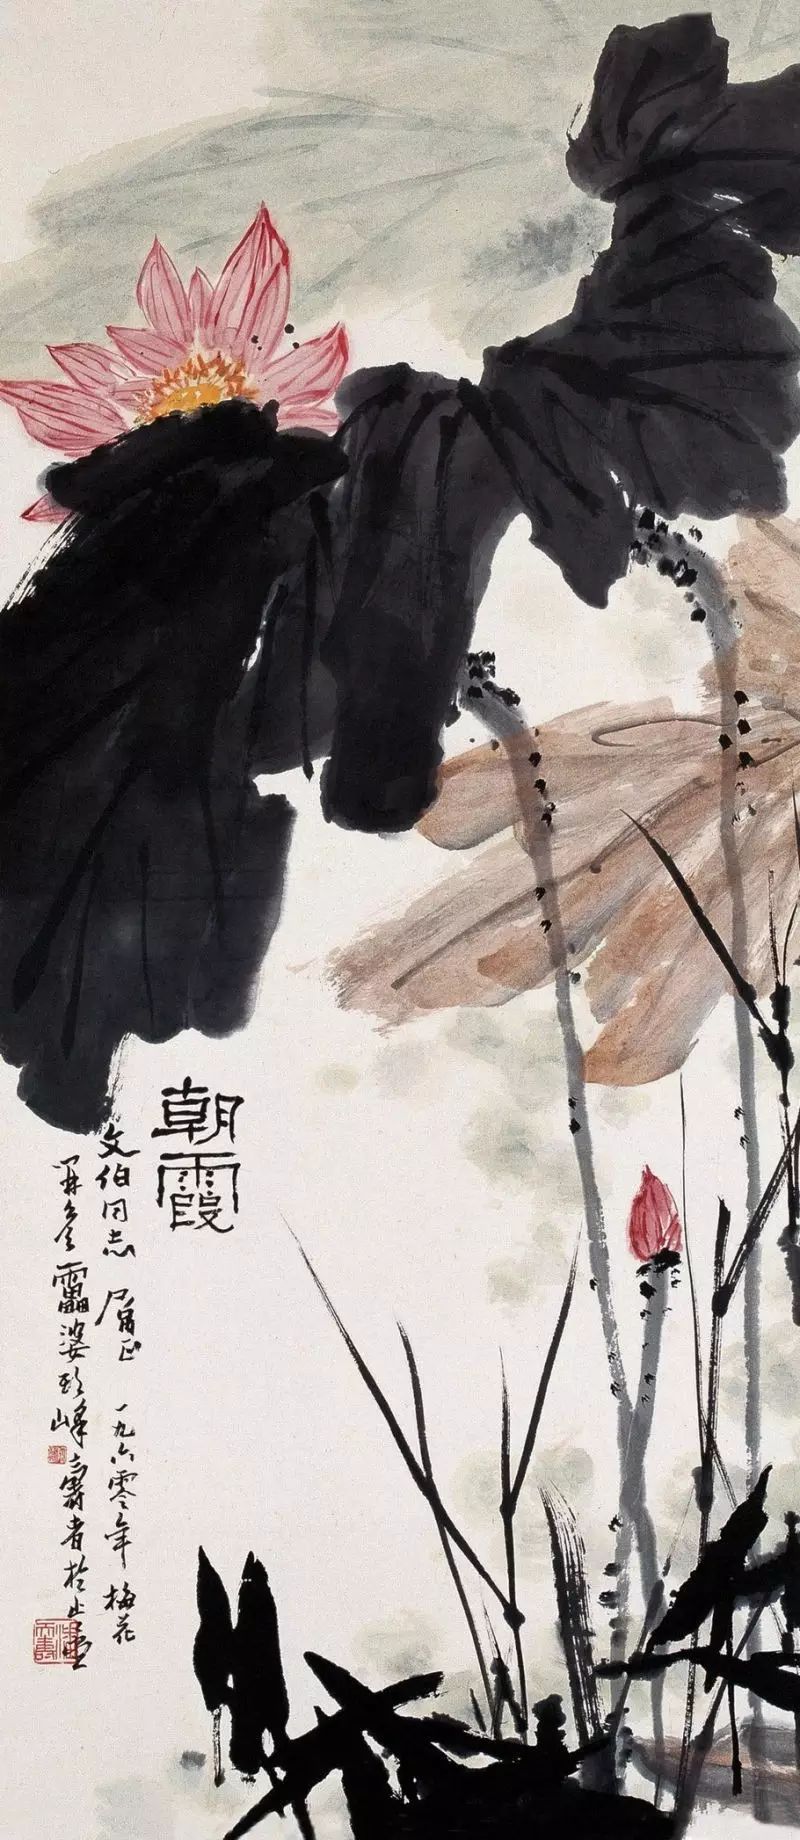 朝霞
文伯同志属正 一九六零年梅花
开令雷婆头峰寿者于止堂